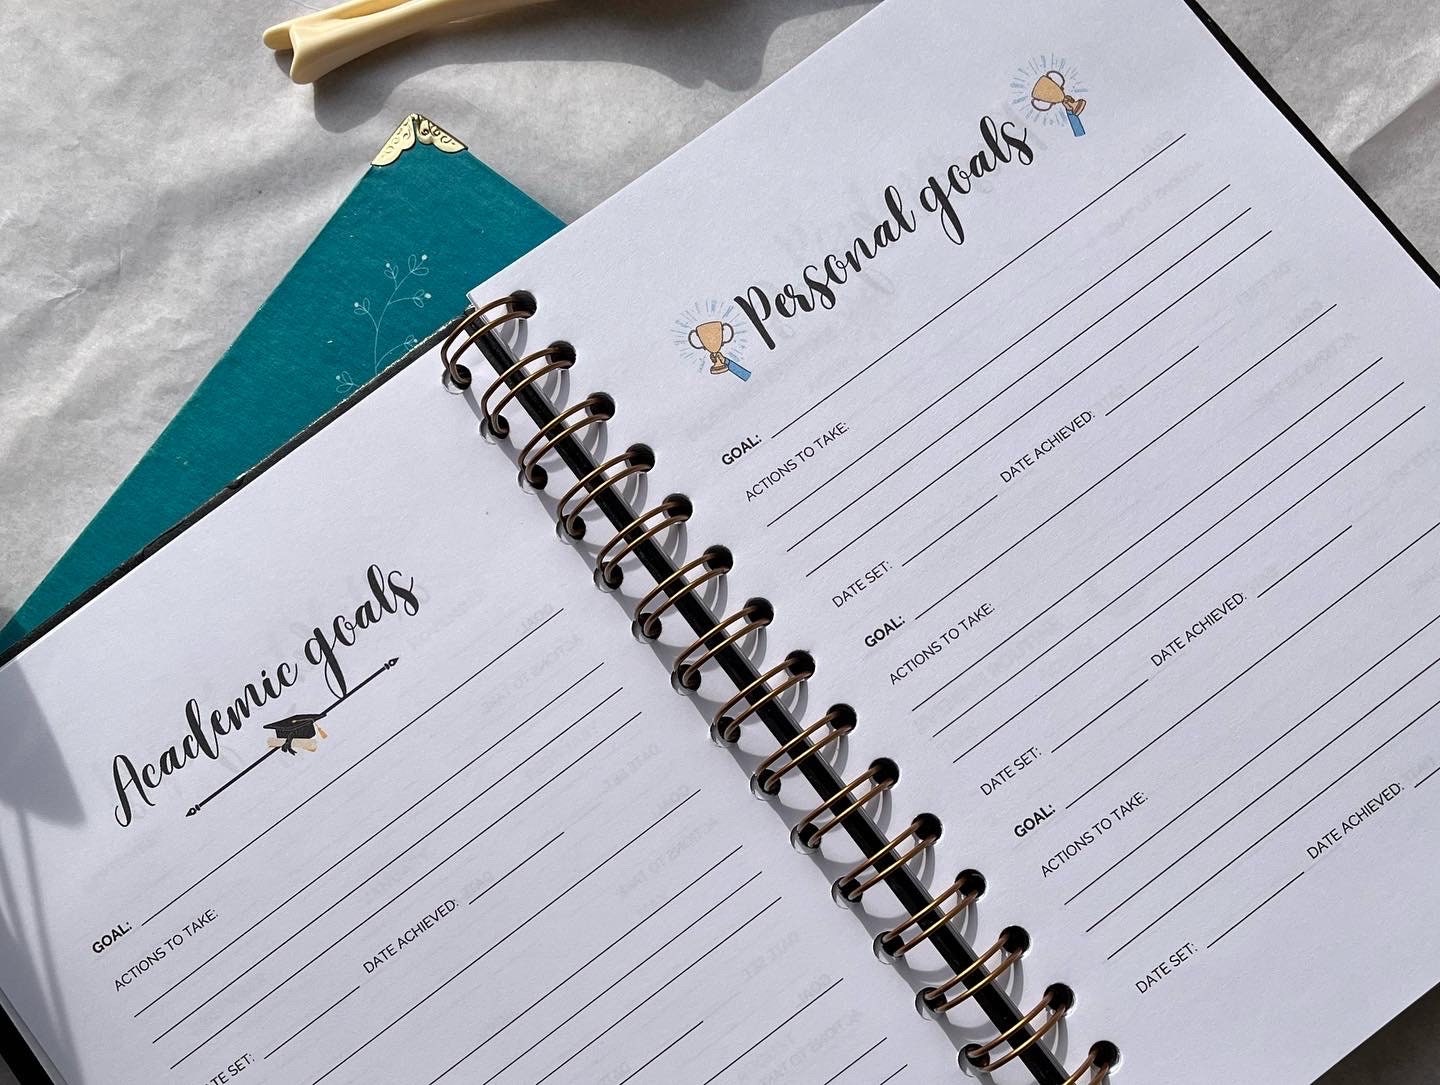 Academic goals
GOAL:
ACTIONS TO TAKE:
TE SET:
DATE ACHIEVED:
Personal goals
GOAL:
ACTIONS TO TAKE:
DATE SET:
DATE ACHIEVED:
GOAL:
ACTIONS TO TAKE:
DATE SET:
DATE ACHIEVED:
GOAL:
ACTIONS TO TAKE:
DATE SET:
DATE ACHIEVED: